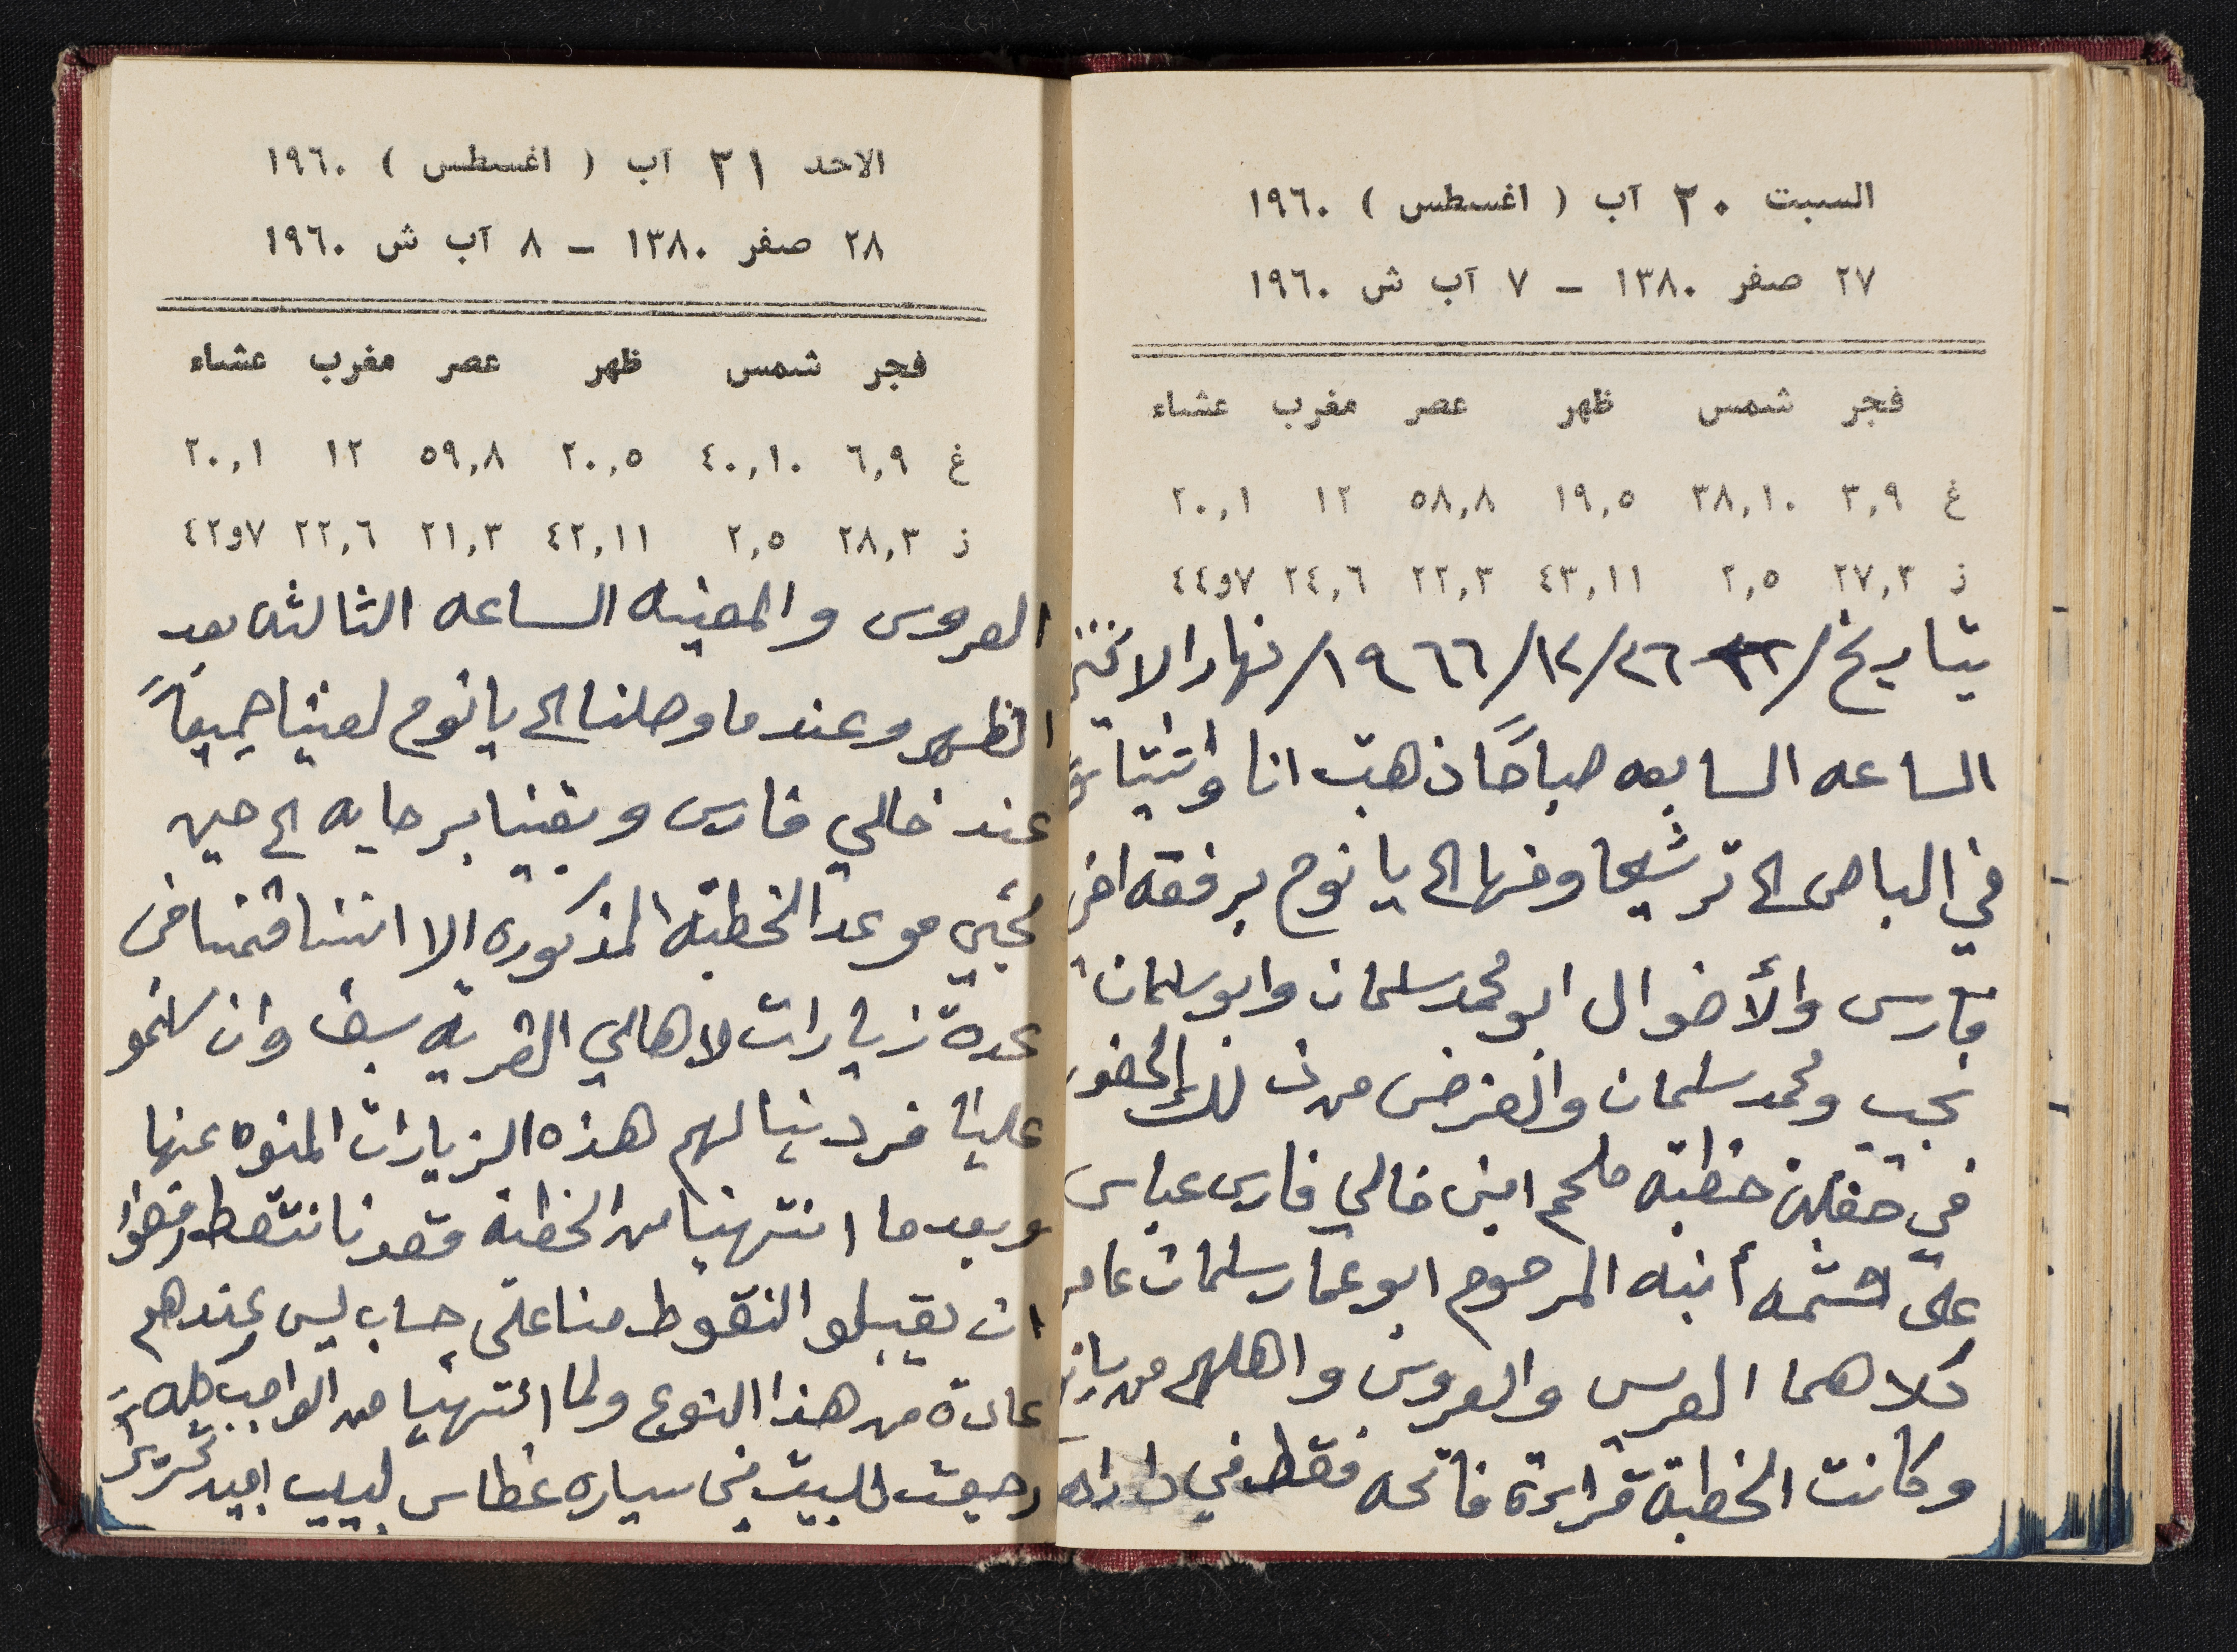 السبت ٢٠ آب ( اغسطس ) ١٩٦٠
٢٧ صفر ١٣٨٠ – ٧ آب ش ١٩٦٠
فجر شمس ظهر عصر مغرب عشاء
غ ٣,٩ ٣٨,١٠ ١٩,٥ ٥٨,٨ ١٢ ٢٠,١
ز ٢٧,٣ ٢,٥ ٤٣,١١ ٢٢,٣ ٢٤,٦ ٧و٤٤
بتاريخ /٢٦/١٢/١٩٦٦/ نهار الاثنين
الساعه السابعه صباحًا ذهبت انا
في الباص الى ترشيحا ومنها الى يانوح برفقه
فارس والأخوال ابو محمد سلمان وابو سلمان
نجيب ومحمد سلمان والغرض من ذلك الحضور
في حفلة خطبة ملحم ابن خالي فارس عباس
على أبنه المرحوم ابو عمار سلمان عامر
كلاهما العريس والعروس واهلهم من
وكانت الخطبة قراءة فاتحه فقط في دار اهل
الاحد ٢١ آب ( اغسطس ) ١٩٦٠
٢٨ صفر ١٣٨٠ – ٨ آب ش ١٩٦٠
فجر شمس ظهر عصر مغرب عشاء
غ ٦,٩ ٤٠,١٠ ٢٠,٥ ٥٩,٨ ١٢ ٢٠,١
ز ٢٨,٣ ٢,٥ ٤٢,١١ ٢١,٣ ٢٢,٦ ٧و٤٢
العروس والمعينه الساعه الثالثه بعد
الظهر وعندما وصلنا الى يانوح لفينا جميعاً
عند خالي فارس وبقينا الى حين
مجيئ موعد الخطبة المذكوره الا اننا قمنا في
عدة زيارات لاهالي القرية سبق وان
علينا فردينا لهم هذه الزيارات المنوه عنها
وبعد ما انتهينا من الخطبة قعدنا ننقط رفضوا
ان يقبلو النقوط منا على حساب ليس عندهم
عادة من هذا النوع ولما انتهينا من الواجب كله
رجعت للبيت في سياره غطاس لبيب